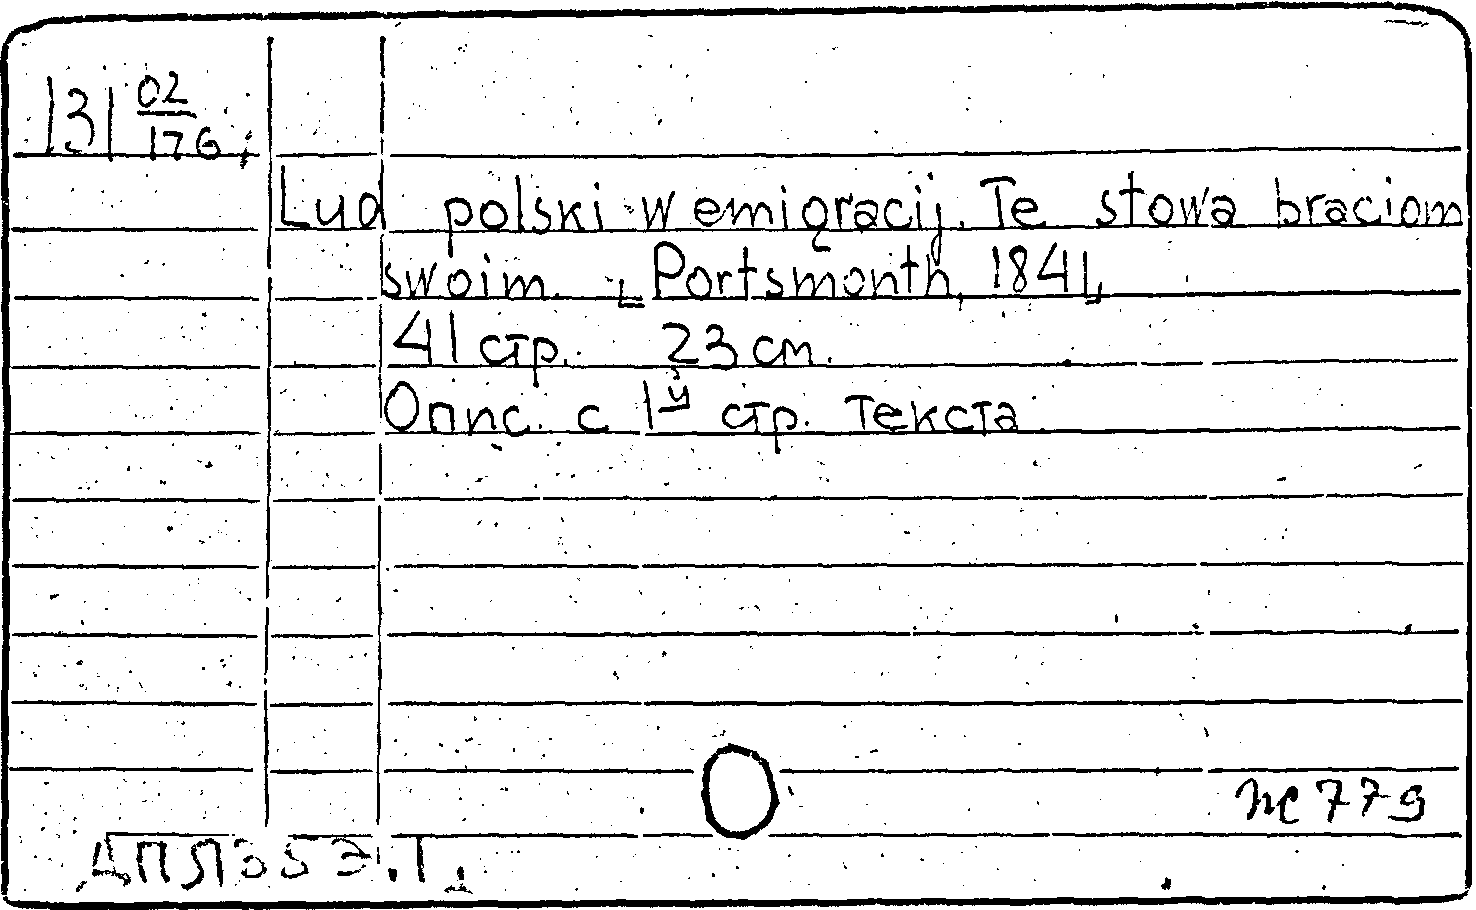 131 02/176
Lud polski w emigracij. Te stowa braciom
swoim. Portsmonth, 1841,
41 стр. 23 cm.
Опис. с 1й стр. текста.
779